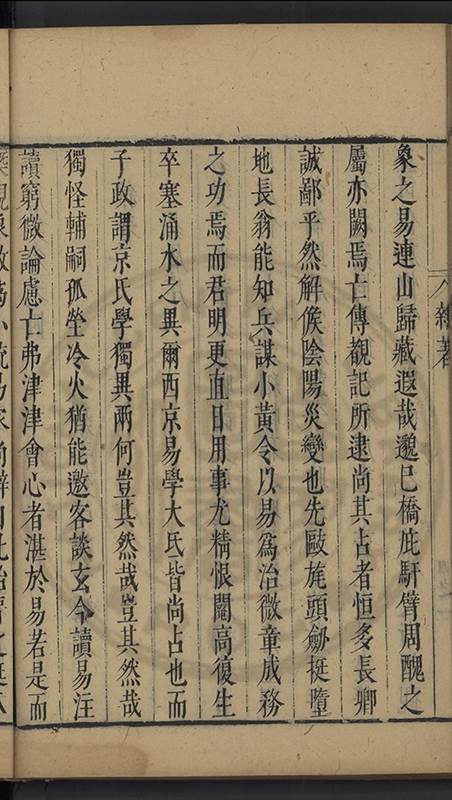 象之易連山歸藏遐哉邈巳橋庇馯臂周醜之
屬亦闕焉亡傳觀記所逮尚其占者恒多長卿
誠鄙乎然解候陰陽災變也先敺旄頭劒挺墮
地長翁能知兵謀小黃令以易爲治微章成務
之功焉而君明更直日用事尤精恨闇高復生
卒塞涌水之異爾西京易學大氏皆尚占也而
子政謂京氏學獨異兩何豈其然哉豈其然哉
獨怪輔嗣孤塋冷火猶能邀客談玄今讀易注
讀窮微論慮亡弗津津會心者湛於易若是而